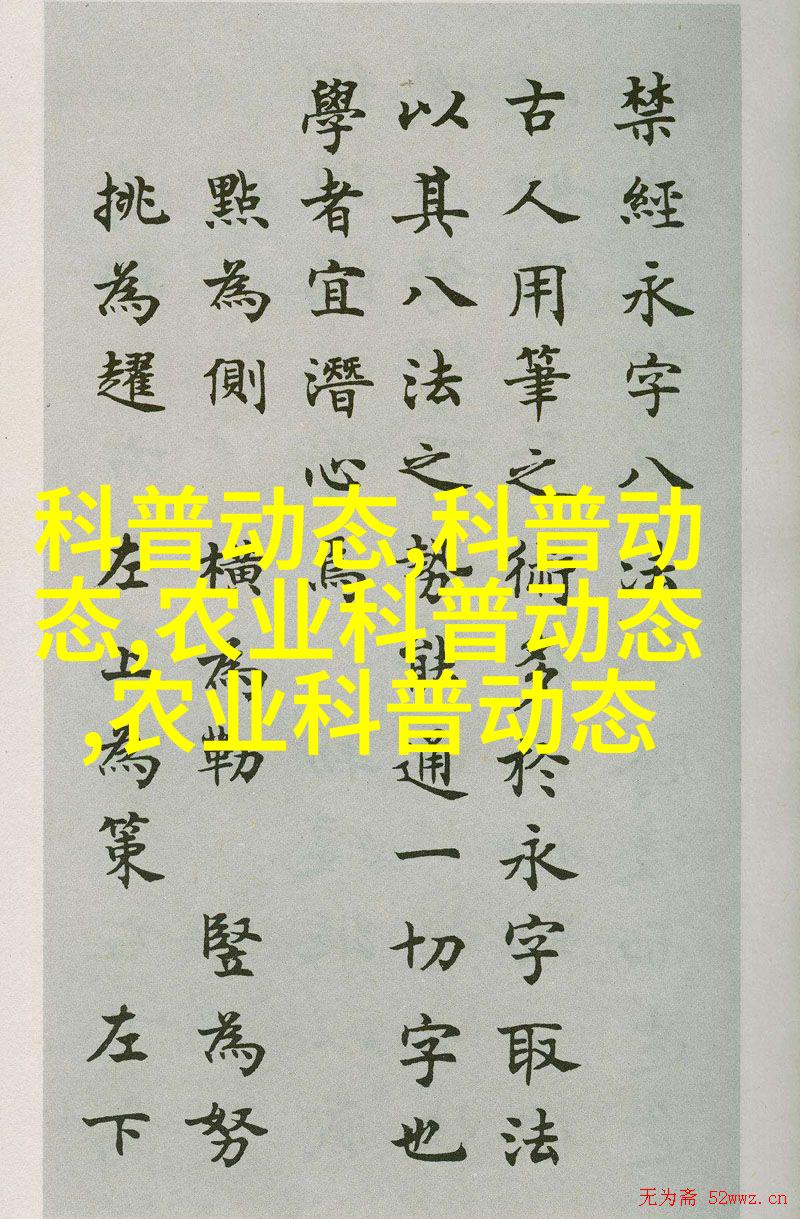 禁經永字八法
古人用筆之術多於永字取法
以其八法之勢能通一切字也
學者宜潛心焉
點為側 橫為勒 竪為努
挑為趯 左上為策 左下
科普动态,科普动
态,农业科普动态
,农业科普动态
无为斋 52wwz.cn